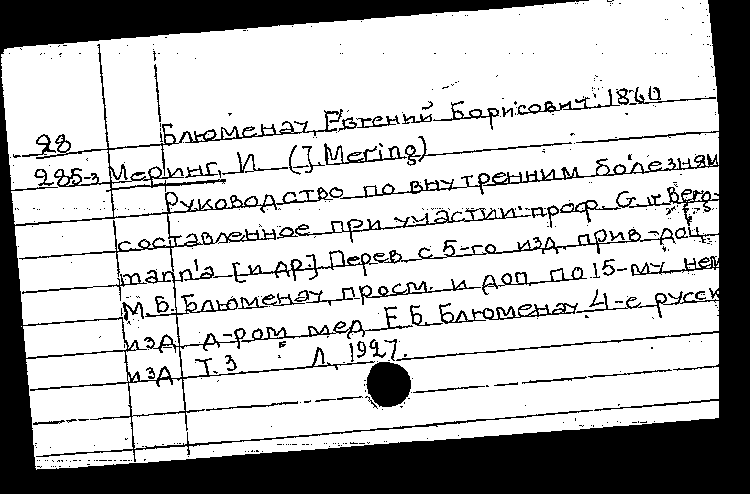 Блюменау, Евгений Борисович. 1860
28
285-з Меринг, И. (J. Mering)
Руководство по внутренним болезням
составленное при участии: проф. G.
mann'a [и др.] Перев с 5-го изд. прив.-доц
М. Б. Блюменау, просм. и доп. по 15-му нем
изд. д-ром мед. Е. Б. Блюменау. 4-е русск
изд. Т. 3. Л., 1927.